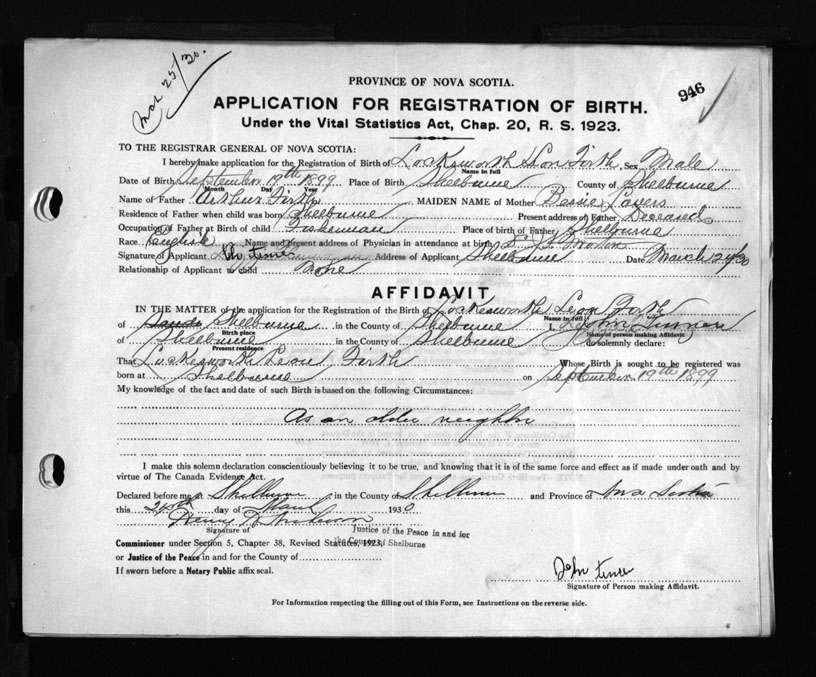 Mar 25/30.
946
PROVINCE OF NOVA SCOTIA.
APPLICATION FOR REGISTRATION OF BIRTH.
Under the Vital Statistics Act, Chap. 20, R. S. 1923.
TO THE REGISTRAR GENERAL OF NOVA SCOTIA:
I hereby make application for the Registration of Birth of Locksworth Leon Firth Sex Male
Name in full
Date of Birth September 19th 1899 Place of Birth Shelburne County of Shelburne
Month Day Year
Name of Father Arthur Firth MAIDEN NAME of Mother Bessie
Residence of Father when child was born Shelburne Present address of Father Deceased
Occupation of Father at Birth of child Fisherman Place of birth of Father Shelburne
Race English Name and present address of Physician in attendance at birth
Signature of Applicant Address of Applicant Shelburne Date March 24/30
Relationship of Applicant to child None
AFFIDAVIT
IN THE MATTER of the application for the Registration of the Birth of Locksworth Leon Firth
Name in full
of Shelburne in the County of Shelburne I, John
Birth place Name of person making Affidavit
of Shelburne in the County of Shelburne do solemnly declare:
Present residence
That Locksworth Leon Firth Whose Birth is sought to be registered was
born at Shelburne on September 19th 1899
My knowledge of the fact and date of such Birth is based on the following Circumstances:
As an older neighbor
I make this solemn declaration conscientiously believing it to be true, and knowing that it is of the same force and effect as if made under oath and by
virtue of The Canada Evidence Act.
Declared before me at Shelburne in the County of Shelburne and Province of Nova Scotia
this 24th day of March 1930
Signature of
Justice of the Peace in and for
the County of Shelburne
Commissioner under Section 5, Chapter 38, Revised Statutes, 1923,
or Justice of the Peace in and for the County of
If sworn before a Notary Public affix seal.
John
Signature of Person making Affidavit.
For Information respecting the filling out of this Form, see Instructions on the reverse side.